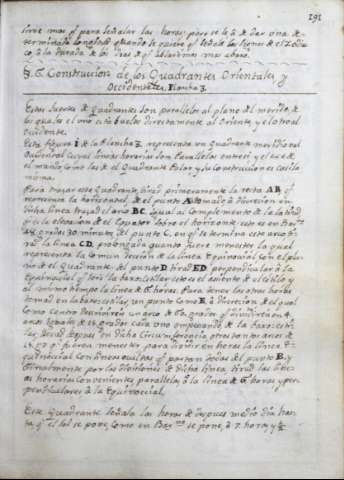 191
sirve mas qe para señalar las horas; pero se le ha de dar una de-
terminada longitud quando se quiere qe señale los signos de el Zodia
co, ò la durada de los dias de qe hablaremos mas abaxo.
§. 6. Construcion de los Quadrantes Orientales y
Occidentales. Plancha 3.
Estas suertes de Quadrantes son parallelos al plano del meridio, de
los quales el uno està buelto directamente al Oriente, y el otro al
Occidente.
Esta figura 1 de la Plancha 3. representa un Quadrante meridional
Occidental cuyas lineas horarias son Parallelas entre si y el exe de
el mundo como las de el Quadrante Polar y su construccion es casi la
misma.
Para trazar este Quadrante, tirad primeramente la recta AB, qe
representa la horizontal, de el punto A tomado à discrecion en
dicha linea trazad el arco BC. igual al complemento de la latitud
ò à la elevacion de el Equador sobre el horizonte, esto es en Barna
48. grados 30. minutos, del punto C, en qe se termina este arco ti-
rad la linea CD, prolongada quanto fuere menester la qual
representa la comun seccion de la linea Equinocial con el pla-
no de el Quadrante. del punto D tirad ED perpendicular à la
Equinocial qe serà la substilar esto es el asiento de el estilo y
al mismo tiempo la linea de 6. horas. Para tener las otras horas
tomad en la substilar un punto como E, à discrecion de el qual
como centro describireis un arco de 60. grados qe dividireis en 4.
arcos iguales de 15 grados cada uno empezando de la substi-
lar. Tirad despues por dicha circunferencia otros tantos arcos de
15. grados qe fueren menester para dividir en horas la linea E-
quinocial con lineas ocultas qe partan todas del punto E, y
finalmente por las divisiones de dicha linea tirad las line-
as horarias convenientes parallelas à la linea de 6. horas y per-
pendiculares à la Equinocial.
Este Quadrante señala las horas de despues medio dia has-
ta qe el sol se pone, como en Barna se pone, à 7. horas y ½